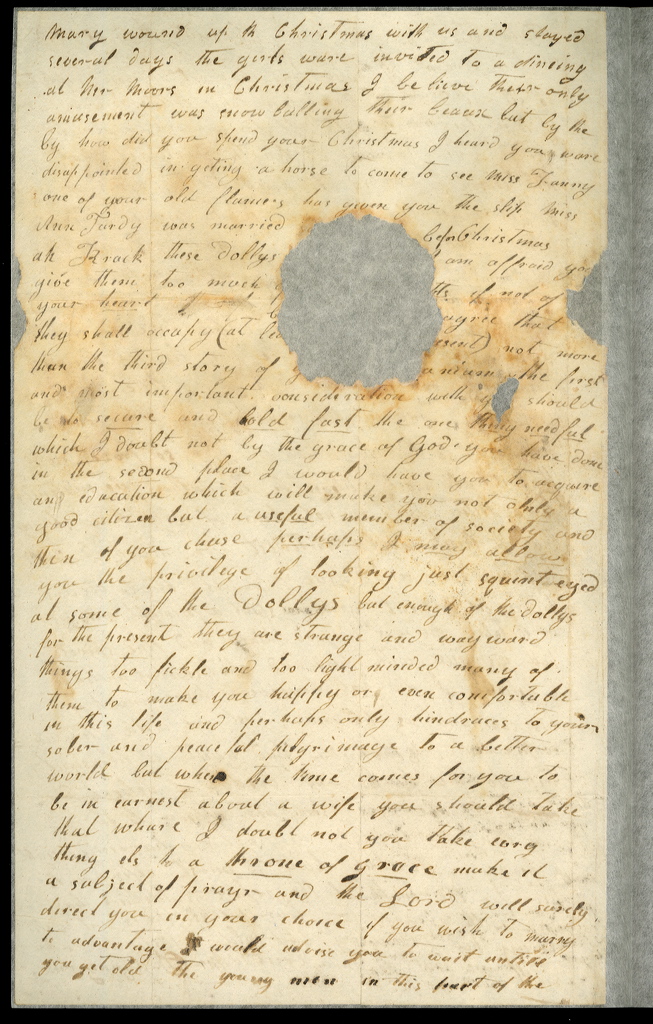 Mary wound up th Christmas with us and stayed
several days the girls ware invited to a dineing
at Mr Moors in Christmas I believe their only
amusement was snow balling their beaux but by the
by how did you spend your Christmas I heard you ware
disappointed in geting a horse to come to see Miss Fanny
one of your old flames has given you the slip Miss
Ann Tardy was married before Christmas
ah these Dollys am affraid you
give them too much if not of
your heart agree that
they shall occupy (at le sent) not more
than the third story of anium the first
and most important consideration with should
be to secure and hold fast the one thing needful
which I doubt not by the grace of God you have done
in the second place I would have you to acquire
an education which will make you not only a
good citizen but a useful member of society and
then if you chuse perhaps I may allow
you the privilege of looking just squint eyed
at some of the Dollys but enough of the Dollys
for the present they are strange and wayward
things too fickle and too light minded many of
them to make you happy or even comfortable
in this life and perhaps only hindraces to your
sober and peaceful pilgrimage to a better
world but when the time comes for you to
be in earnest about a wife you should take
that whare I doubt not you take evry
thing els to a throne of grace make it
a subject of prayr and the Lord will surely
direct you in your choice if you wish to marry
to advantage I would advise you to wait untill
you get old the young men in this part of the